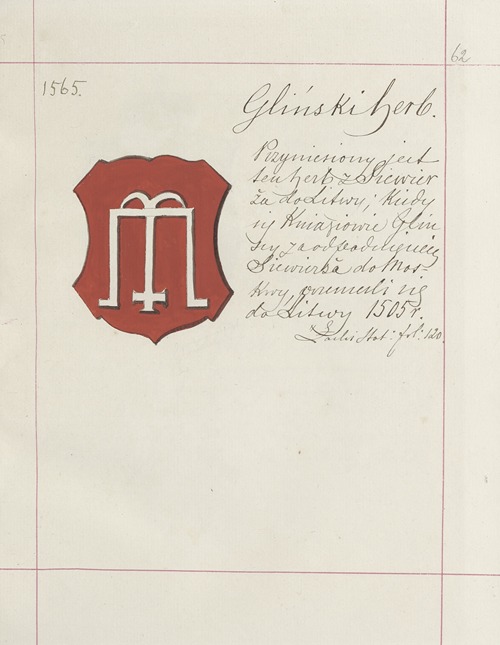 62
1565.
Gliński herb.
Przyniesiony jest
ten herb z Siewier
ża do Litwy; Kiedy
się Kniaziowie Gliń
scy za odpadnięciem
Siewierża do Mos-
kwy, przenieśli się
do Litwy 1505 r.
Stat: fol: 120.